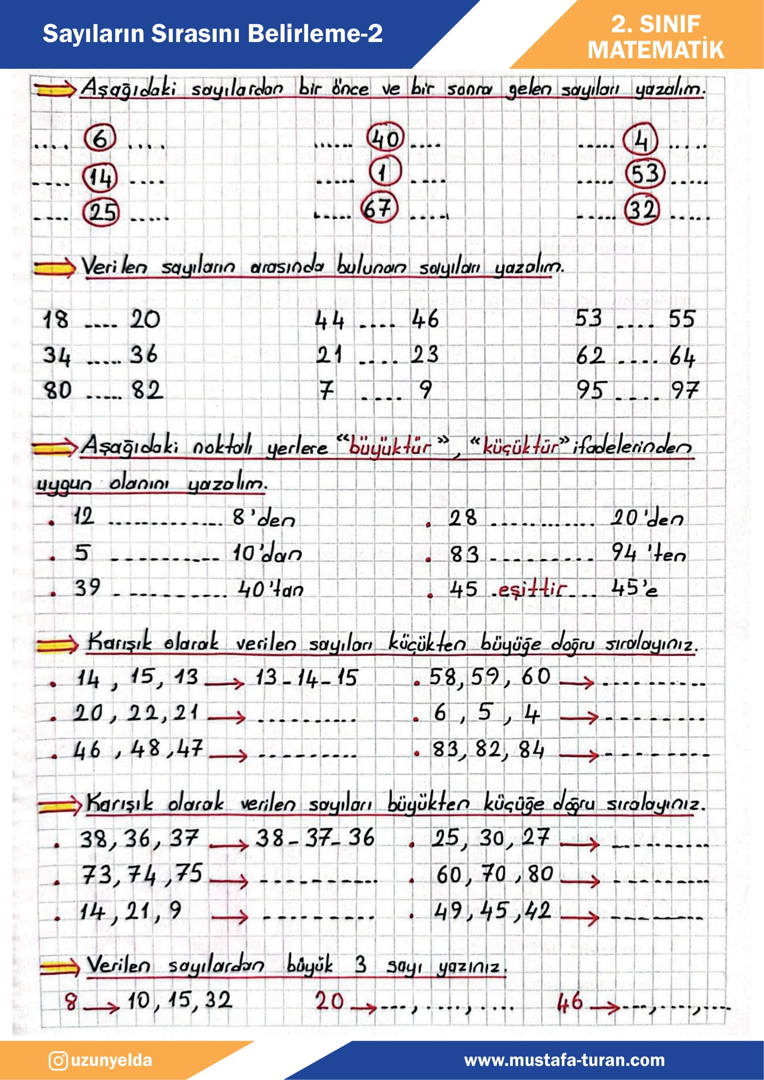 Sayıların Sırasını Belirleme-2
2. SINIF
MATEMATİK
Aşağıdaki sayılardan bir önce ve bir sonra gelen sayıları yazalım.
..... 6 .... ...... 40 .... ..... 4 .....
.... 14 .... ..... 1 .... ..... 53 .....
.... 25 ..... ..... 67 .... ..... 32 .....
Verilen sayıların arasında bulunan sayıları yazalım.
18 .... 20 44 .... 46 53 .... 55
34 ..... 36 21 .... 23 62 .... 64
80 ..... 82 7 .... 9 95 .... 97
Aşağıdaki noktalı yerlere "büyüktür", "küçüktür" ifadelerinden
uygun olanını yazalım.
• 12 ............. 8'den • 28 ............ 20'den
• 5 ............ 10'dan • 83 ........... 94'ten
• 39 ............ 40'tan • 45 .eşittir... 45'e
Karışık olarak verilen sayıları küçükten büyüğe doğru sıralayınız.
• 14, 15, 13 → 13-14-15 • 58, 59, 60 → ...........
• 20, 22, 21 → ........... • 6, 5, 4 → ...........
• 46, 48, 47 → ........... • 83, 82, 84 → ...........
Karışık olarak verilen sayıları büyükten küçüğe doğru sıralayınız.
• 38, 36, 37 → 38-37-36 • 25, 30, 27 → ...........
• 73, 74, 75 → ............ • 60, 70, 80 → ...........
• 14, 21, 9 → ........... • 49, 45, 42 → ..........
Verilen sayılardan büyük 3 sayı yazınız.
8 → 10, 15, 32 20 → ..., ...., .... 46 → ...,....,....
uzunyelda
www.mustafa-turan.com